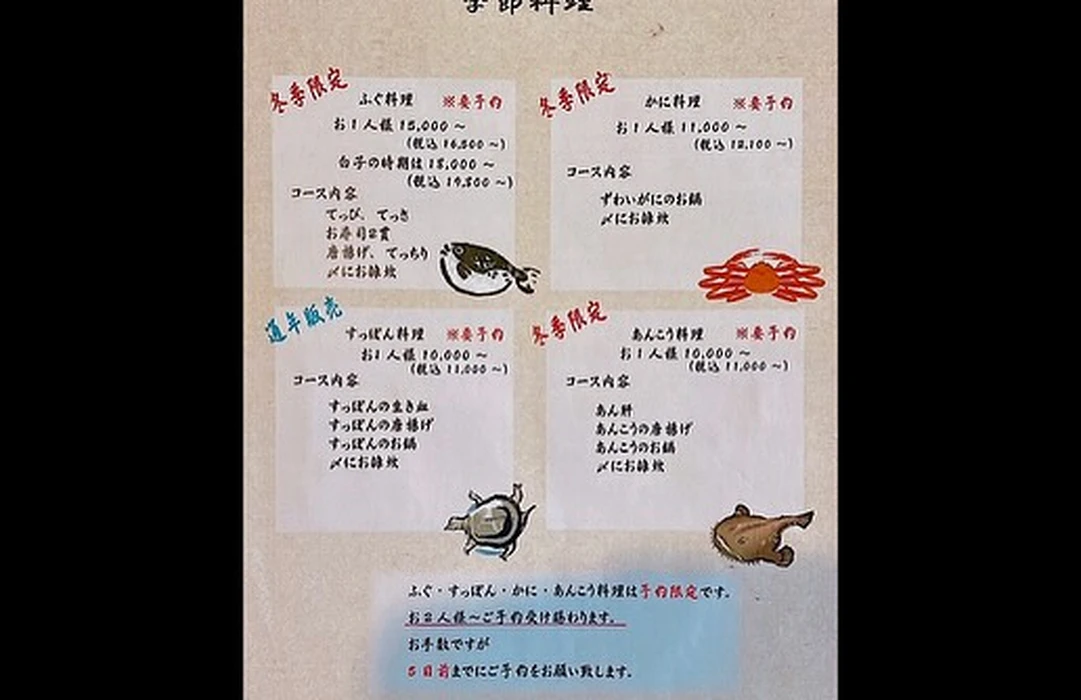 季節料理
冬季限定
ふぐ料理 ※要予約
お1人様 15,000 ～
(税込 16,500 ～)
白子の時期は 18,000 ～
(税込 19,800 ～)
コース内容
てっぴ、てっさ
お寿司2貫
唐揚げ、てっちり
〆にお雑炊
冬季限定
かに料理 ※要予約
お1人様 11,000 ～
(税込 12,100 ～)
コース内容
ずわいがにのお鍋
〆にお雑炊
通年販売
すっぽん料理 ※要予約
お1人様 10,000 ～
(税込 11,000 ～)
コース内容
すっぽんの生き血
すっぽんの唐揚げ
すっぽんのお鍋
〆にお雑炊
冬季限定
あんこう料理 ※要予約
お1人様 10,000 ～
(税込 11,000 ～)
コース内容
あん肝
あんこうの唐揚げ
あんこうのお鍋
〆にお雑炊
ふぐ・すっぽん・かに・あんこう料理は予約限定です。
お2人様～ご予約受け賜わります。
お手数ですが
5日前までにご予約をお願い致します。